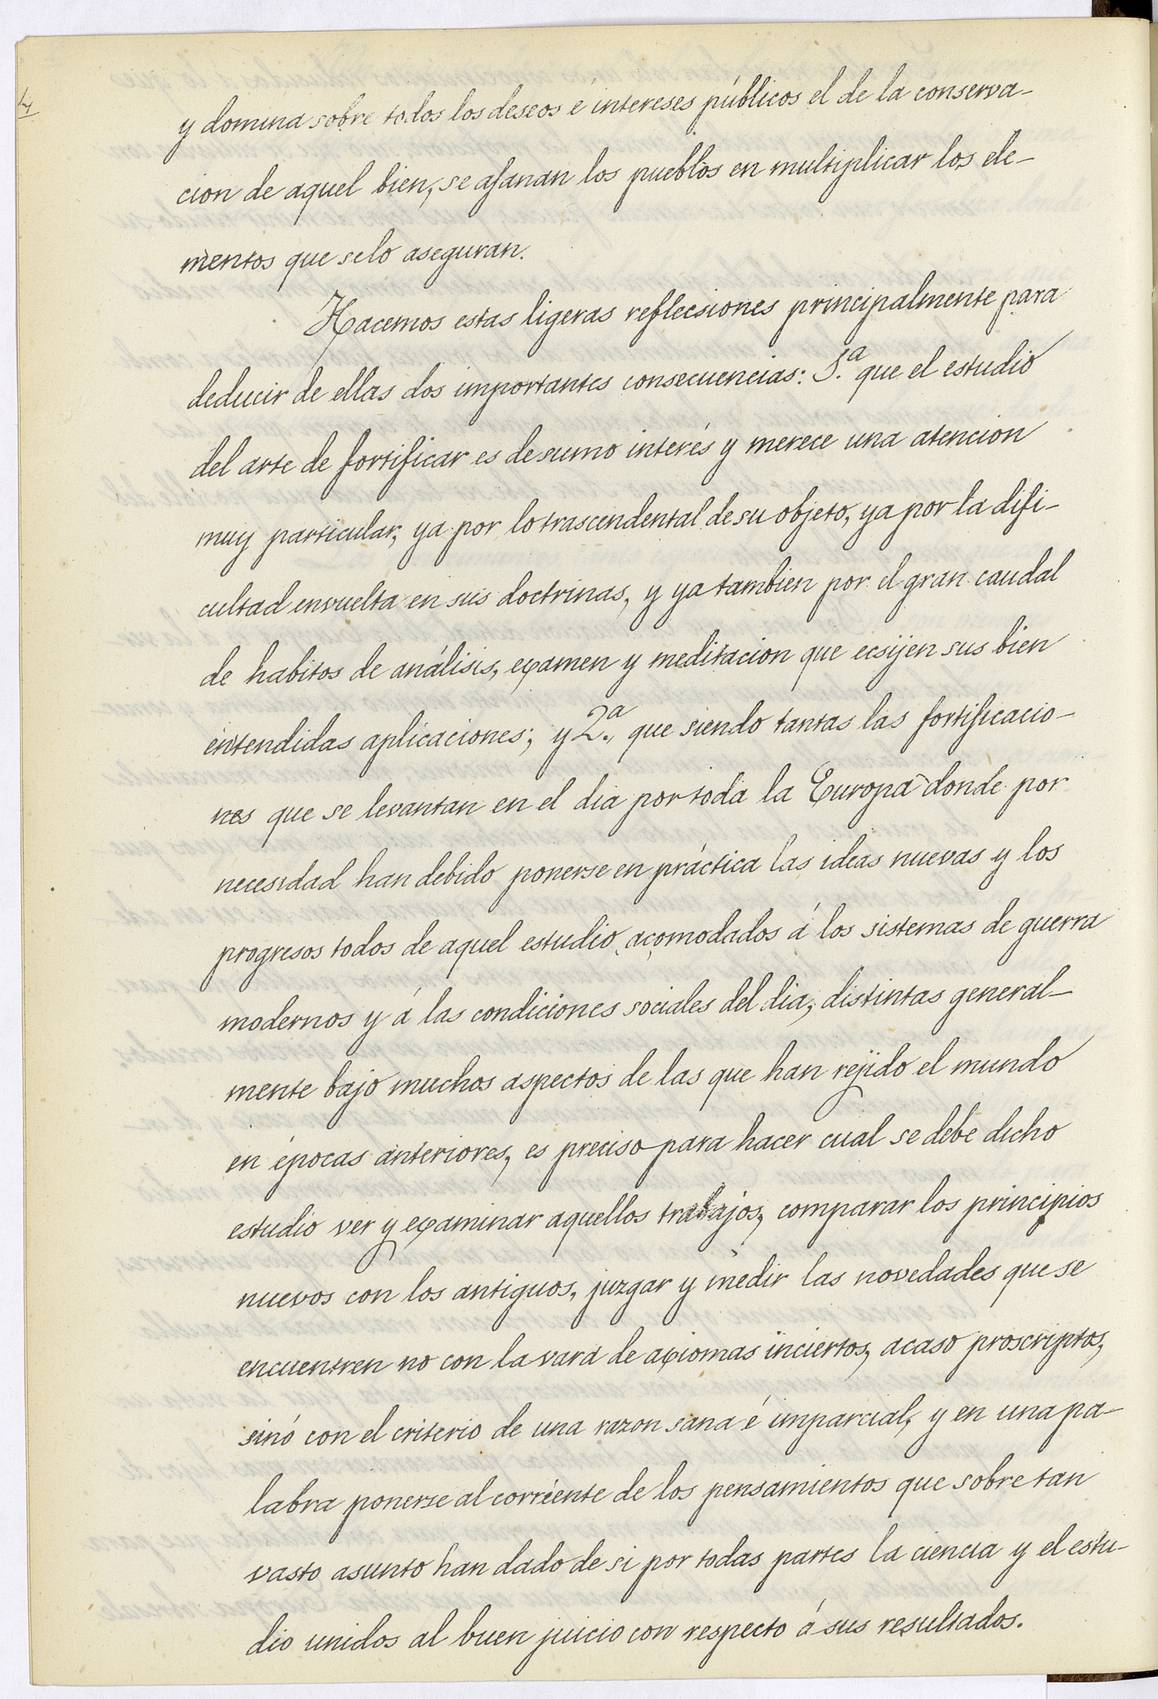 y domina sobre todos los deseos é intereses públicos el de la conserva-
cion de aquel bien, se afanan los pueblos en multiplicar los ele-
mentos que selo aseguran.
Hacemos estas ligeras reflecsiones principalmente para
deducir de ellas dos importantes consecuencias: 1.ª que el estudio
del arte de fortificar es de sumo interés y merece una atencion
muy particular, ya por lo trascendental de su objeto, ya por la difi-
cultad envuelta en sus doctrinas, y ya tambien por el gran caudal
de habitos de análisis, examen y meditacion que ecsijen sus bien
entendidas aplicaciones; y 2.ª que siendo tantas las fortificacio-
nes que se levantan en el dia por toda la Europa donde por
necesidad han debido ponerse en práctica las ideas nuevas y los
progresos todos de aquel estudio, acomodados á los sistemas de guerra
modernos y á las condiciones sociales del dia, distintas general-
mente bajo muchos aspectos de las que han rejido el mundo
en épocas anteriores, es preciso para hacer cual se debe dicho
estudio ver y examinar aquellos trabajos, comparar los principios
nuevos con los antiguos, juzgar y medir las novedades que se
encuentren no con la vara de axiomas inciertos, acaso proscriptos,
sinó con el criterio de una razon sana é imparcial, y en una pa-
labra ponerse al corriente de los pensamientos que sobre tan
vasto asunto han dado de si por todas partes la ciencia y el estu-
dio unidos al buen juicio con respecto á sus resultados.